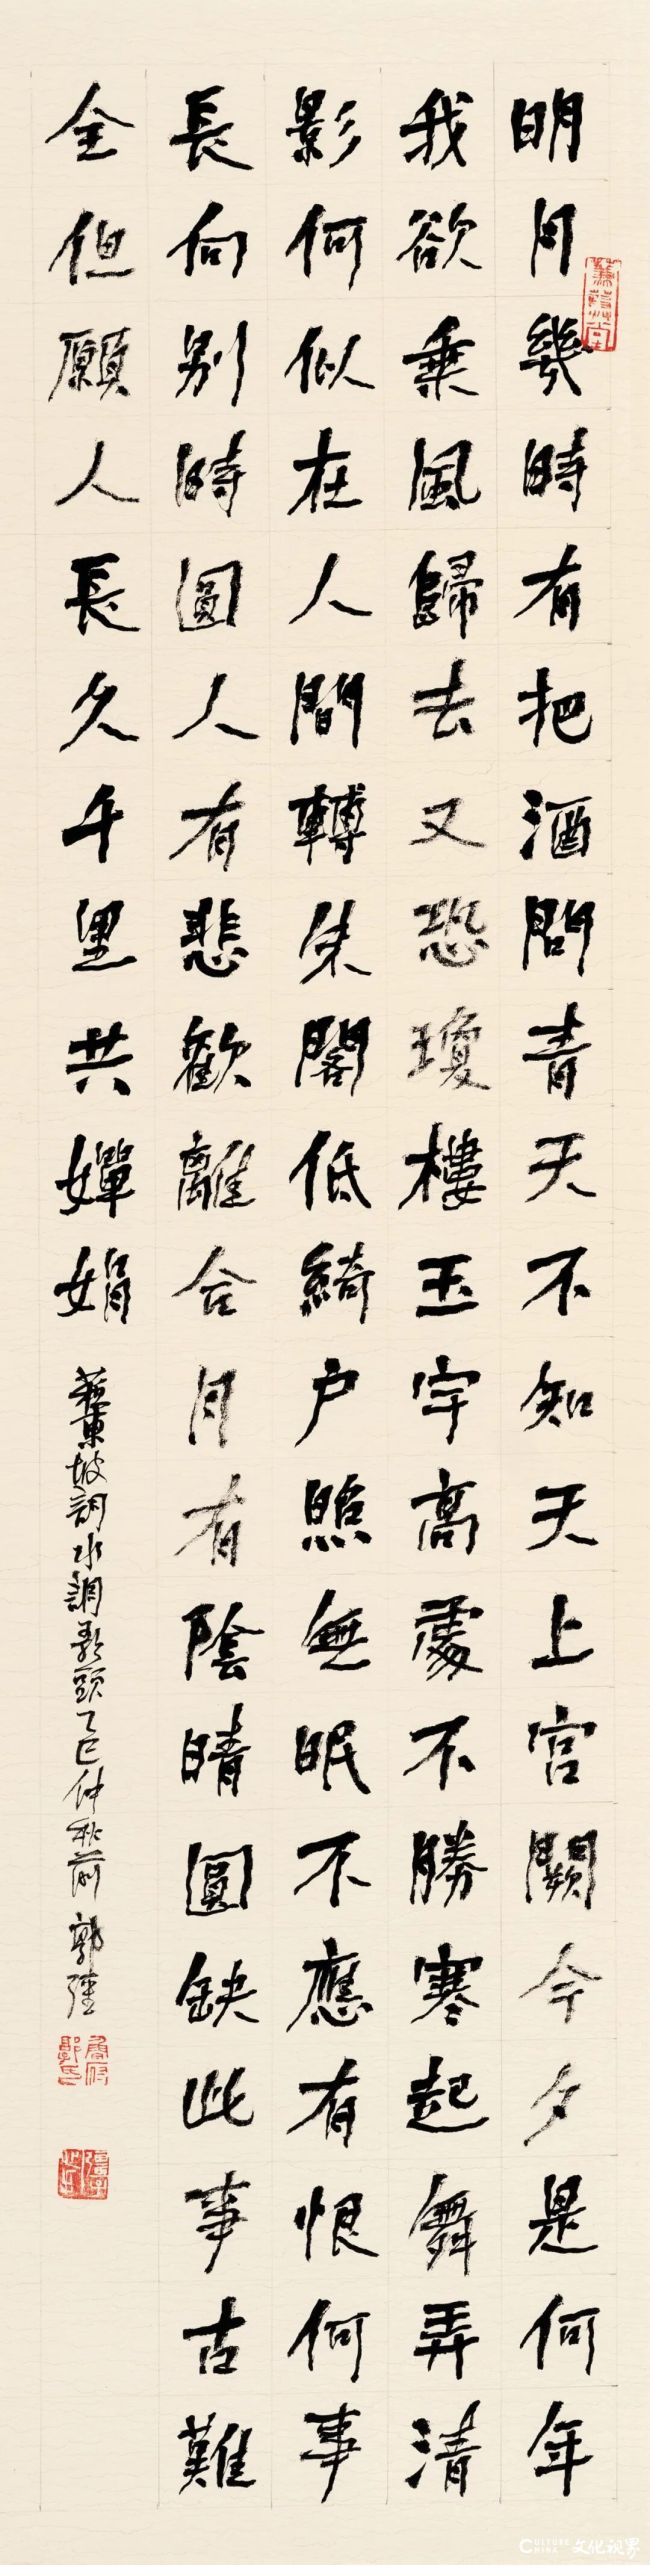 明月幾時有把酒問青天不知天上宮闕今夕是何年
我欲乘風歸去又恐瓊樓玉宇高處不勝寒起舞弄清
影何似在人間轉朱閣低綺户照無眠不應有恨何事
長向別時圓人有悲歡離合月有陰晴圓缺此事古難
全但願人長久千里共嬋娟
蘇東坡詞水調歌頭乙巳仲秋前 郭強
CULTURE CHINA 文化视界